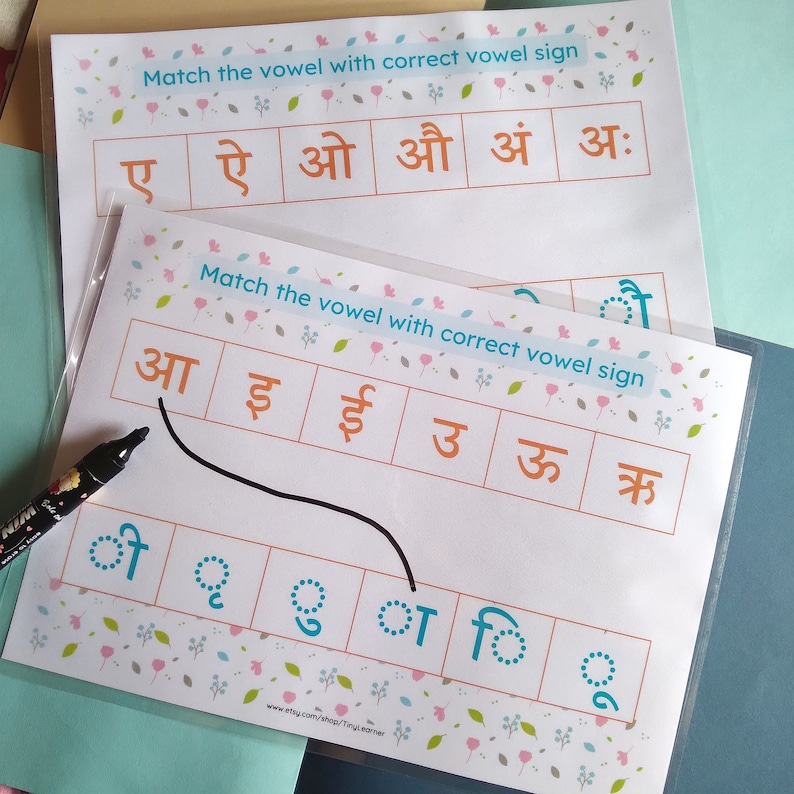 Match the vowel with correct vowel sign
ए ऐ ओ औ अं अः
ौ
Match the vowel with correct vowel sign
आ इ ई उ ऊ ऋ
ी ृ ु ा ि ू
www.etsy.com/shop/TinyLearner